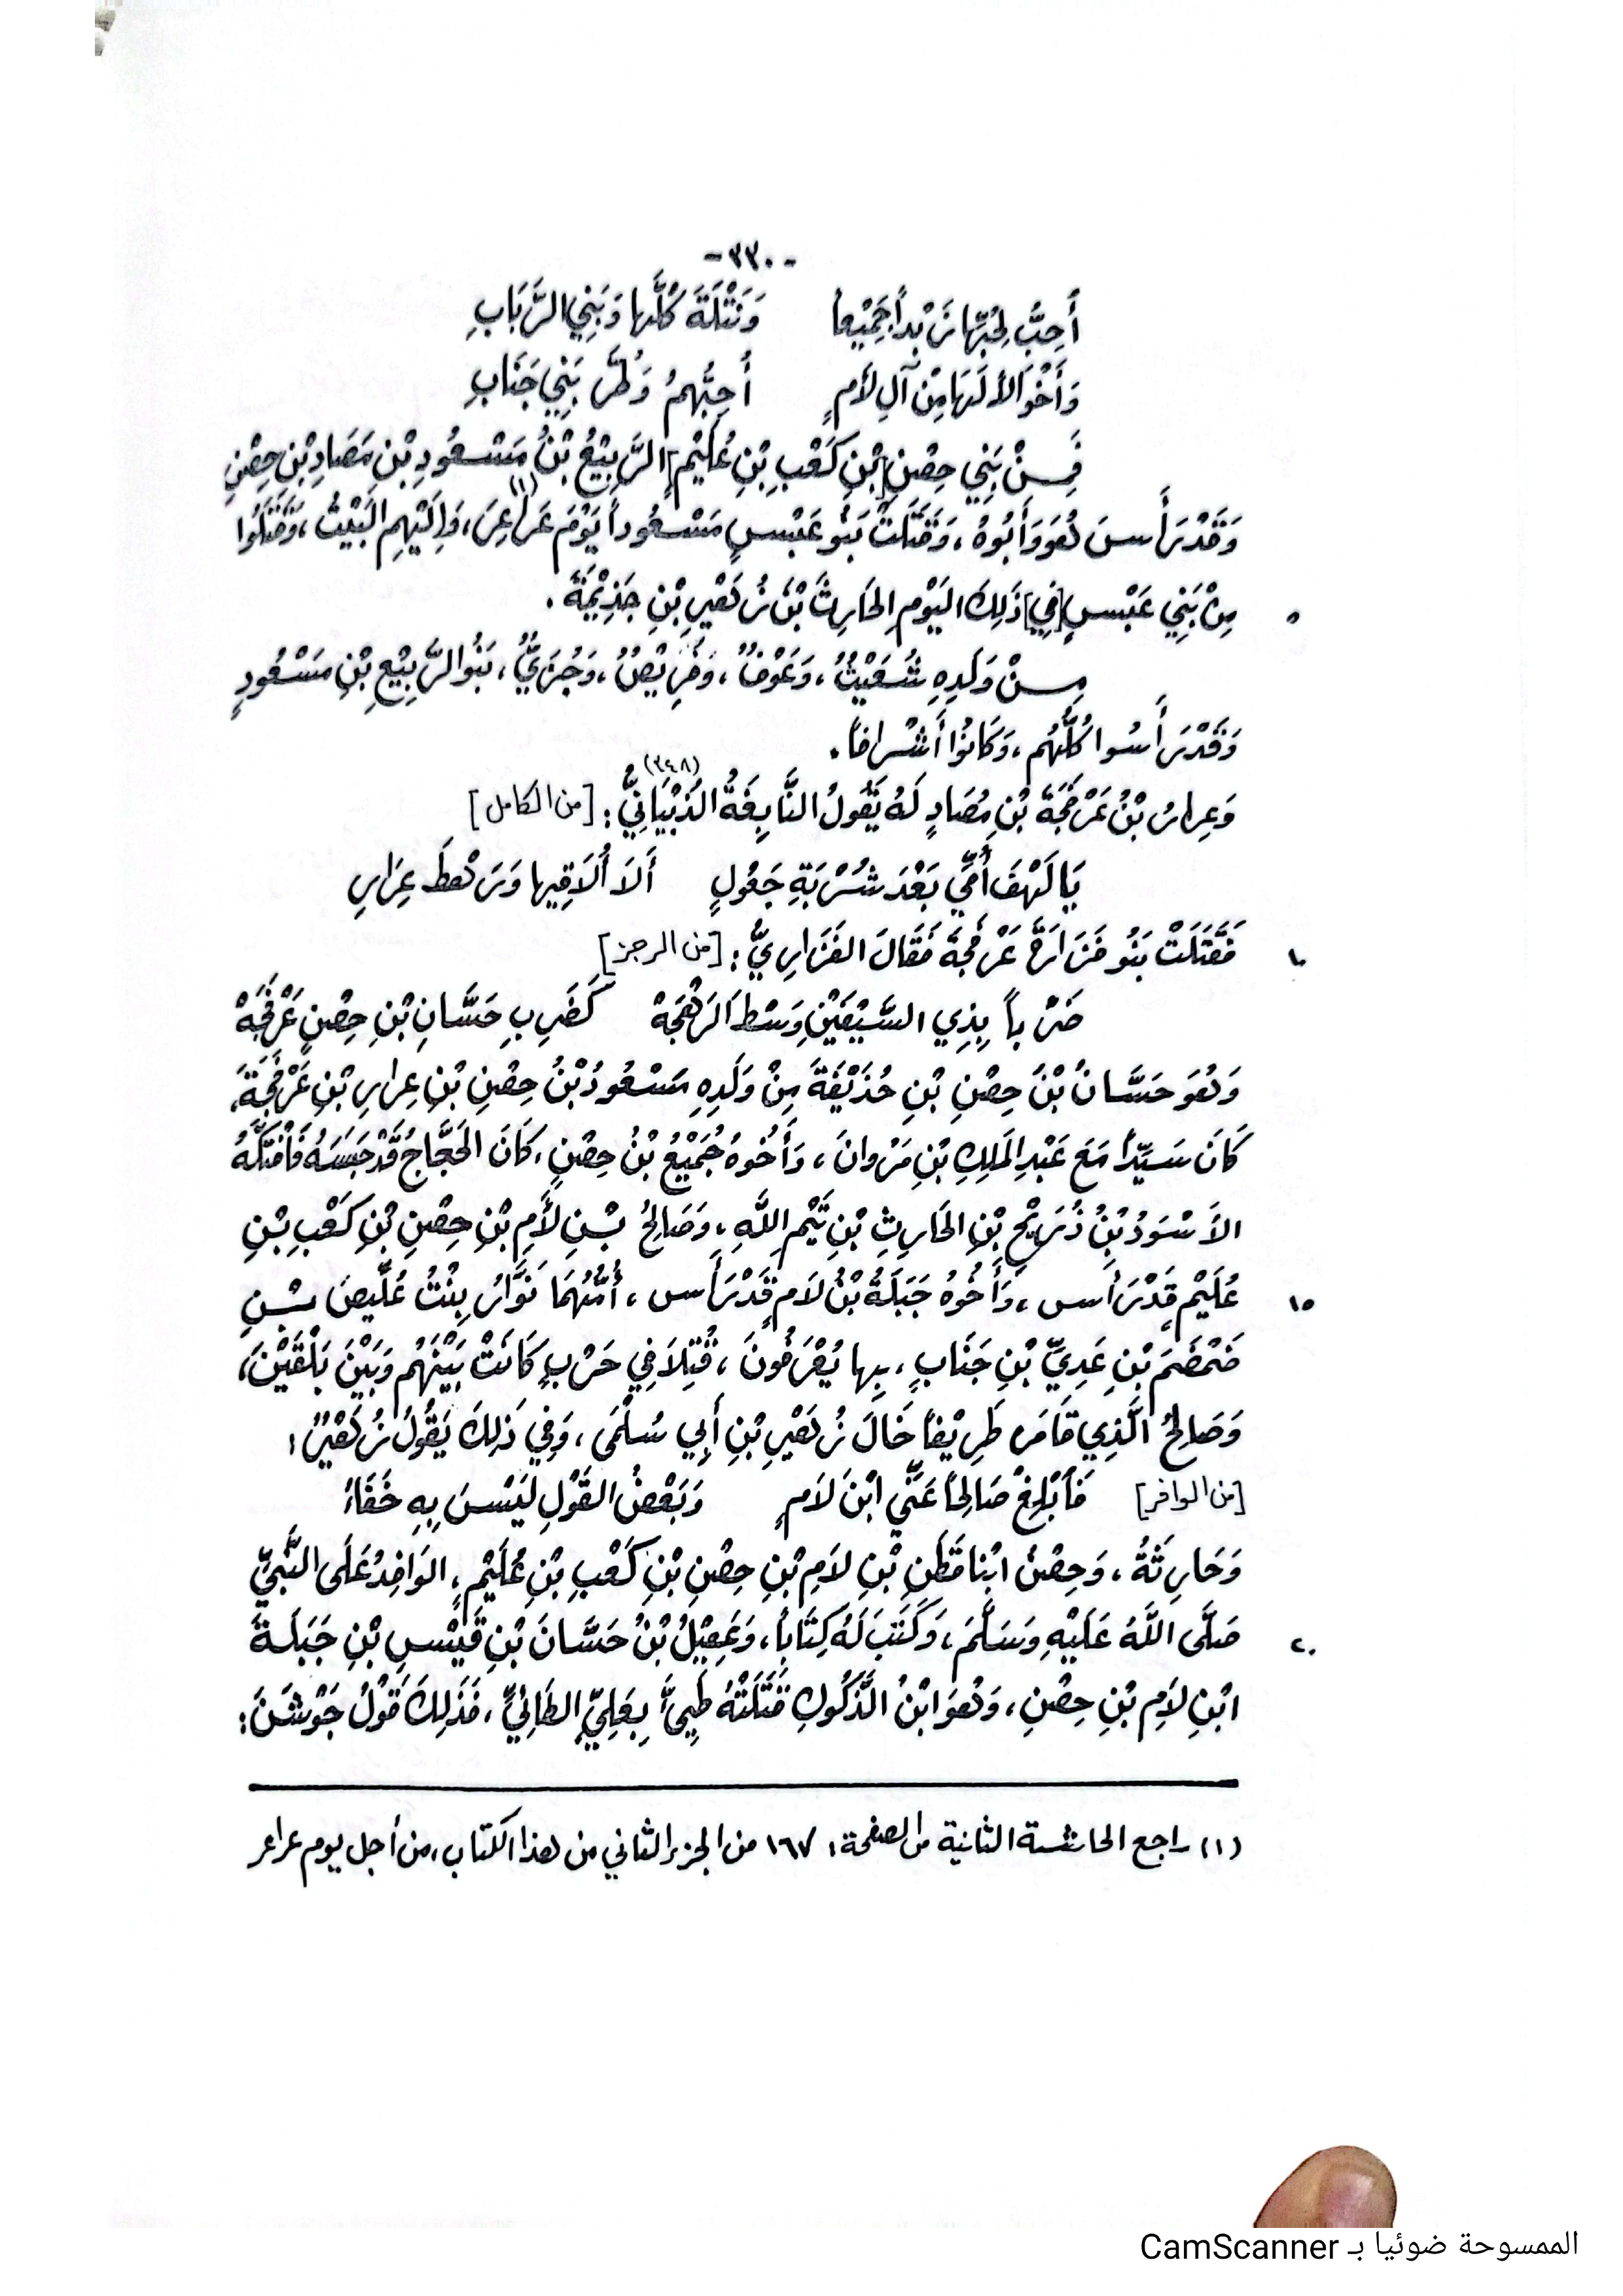 - ٣٣٠ -
أُحِبُّ لِحُبِّها زَبْداً جَمِيْعاً وَنَتْلَةَ كُلَّها وَبَنِي الرَّبَابِ
وَأَخْوَالاً لَهَا مِنْ آلِ لأمٍ أُحِبُّهمُ وَطُرَّ بَنِي جَنَابِ
فَمِنْ بَنِي حِصْنِ [بْنِ كَعْبِ بْنِ عُلَيْمٍ] الرَّبِيْعُ بْنُ مَسْعُودِ بْنِ مَصَادِ بْنِ حِصْنِ
وَقَدْ رَأَسَ هُوَ وَأَبُوهُ، وَقَتَلَتْ بَنُو عَبْسٍ مَسْعُوداً يَوْمَ عَرَاعِرَ(١)، وَإِلَيْهِمِ البَيْتُ، وَقَتَلُوا
٥ مِنْ بَنِي عَبْسٍ [فِي] ذَلِكَ اليَوْمِ الحَارِثَ بْنَ زُهَيْرِ بْنِ جَذِيْمَةَ.
مِنْ وَلَدِهِ شُعَيْثٌ، وَعَوْفٌ، وَفُرِيْصٌ، وَجُزَيٌّ، بَنُو الرَّبِيْعِ بْنِ مَسْعُودٍ
وَقَدْ رَأَسُوا كُلُّهُم، وَكَانُوا أَشْرَافاً.
وَعِرارُ بْنُ عَرْفَجَةَ بْنِ مَصَادٍ لَهُ يَقُولُ النَّابِغَةُ الذُبْيَانِيُّ (٣٤٨): [من الكامل]
يَا لَهْفَ أُمِّي بَعْدَ شُرْبَةِ جَعْوَلٍ أَلَا أُلَاقِيها وَرَهْطَ عِرَارِ
١٠ فَقَتَلَتْ بَنُو فَزَارَةَ عَرْفَجَةَ فَقَالَ الفَزَارِيُّ: [من الرجز]
ضَرْباً بِذِي السَّيْفَيْنِ وَسْطَ الرَهْجَهْ كَضَرِبِ حَسَّانِ بْنِ حِصْنٍ عَرْفَجَهْ
وَهُوَ حَسَّانُ بْنُ حِصْنِ بْنِ حُذَيْفَةَ مِنْ وَلَدِهِ مَسْعُودُ بْنُ حِصْنِ بْنِ عِرارِ بْنِ عَرْفَجَةَ،
كَانَ سَيِّداً مَعَ عَبْدِ المَلِكِ بْنِ مَرْوانَ، وَأَخُوهُ جُمَيْعُ بْنُ حِصْنٍ، كَانَ الحَجَّاجُ قَدْ حَبَسَهُ فَافْتَكَّهُ
الأَسْوَدُ بْنُ ذُرَيْحِ بْنِ الحَارِثِ بْنِ تَيْمِ اللَّهِ، وَصَالِحُ بْنِ لأَمِ بْنِ حِصْنِ بْنِ كَعْبِ بْنِ
١٥ عُلَيْمٍ قَدْ رَأَسَ، وَأَخُوهُ جَبَلَةُ بْنُ لَامٍ قَدْ رَأَس، أُمُّهُمَا نَوَّارُ بِنْتُ عُلَّيصَ بْنِ
ضَمْضَمَ بْنِ عَدِيِّ بْنِ جَنَابٍ، بِها يُعْرَفُونَ، قُتِلَا فِي حَرْبٍ كَانَتْ بَيْنَهُم وَبَيْنَ بَلْقَيْنَ،
وَصَالِحُ الَّذِي قَامَرَ طَرِيْفاً خَالَ زُهَيْرِ بْنِ أَبِي سُلْمَى، وَفِي ذَلِكَ يَقُولُ زُهَيْرٌ:
[من الوافر] فَأَبْلِغْ صَالِحاً عَنِّي ابْنَ لَامٍ وَبَعْضُ القَوْلِ لَيْسَ بِهِ خَفَاءُ
وَحَارِثَةُ، وَحِصْنُ ابْنا قَطَنِ بْنِ لَامِ بْنِ حِصْنِ بْنِ كَعْبِ بْنِ عُلَيْمٍ، الوَافِدُ عَلَى النَّبِيِّ
٢٠ صَلَّى اللَّهُ عَلَيْهِ وَسَلَّمَ، وَكَتَبَ لَهُ كِتَاباً، وَعَقِيْلُ بْنُ حَسَّانَ بْنِ قَيْسِ بْنِ جَبَلَةَ
ابْنِ لَامِ بْنِ حِصْنِ، وَهُوَ ابْنُ الدَّكُوكِ قَتَلَتْهُ طَيِءٌ بِعَلِيٍّ الطَائِيِّ، فَذَلِكَ قَوْلُ جَوْشَنَ:
(١) راجع الحاشية الثانية من الصفحة: ١٦٧ من الجزء الثاني من هذا الكتاب، من أجل يوم عراعر
الممسوحة ضوئيا بـ CamScanner